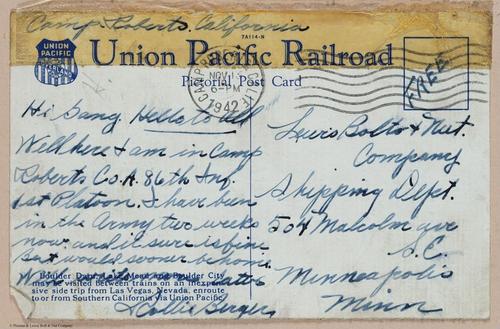 Camp Roberts. California
7A114-N
UNION
PACIFIC
Union Pacific Railroad
Pictorial Post Card
CAMP ROBERTS CALIF
NOV
6-PM
1942
FREE
Hi Gang. Hello to all
Well here I am in Camp
Roberts Co. A. 86th Inf.
1st Platoon. I have been
in the Army two weeks
now. and it sure is fine
But would sooner be home
later
Boulder Dam, Lake Mead and Boulder City
may be visited between trains on an inexpen-
sive side trip from Las Vegas, Nevada, enroute
to or from Southern California via Union Pacific.
Lewis Bolto & Nut.
Company
Shipping Dept.
504 Malcolm ave
S.E.
Minneapolis
Minn